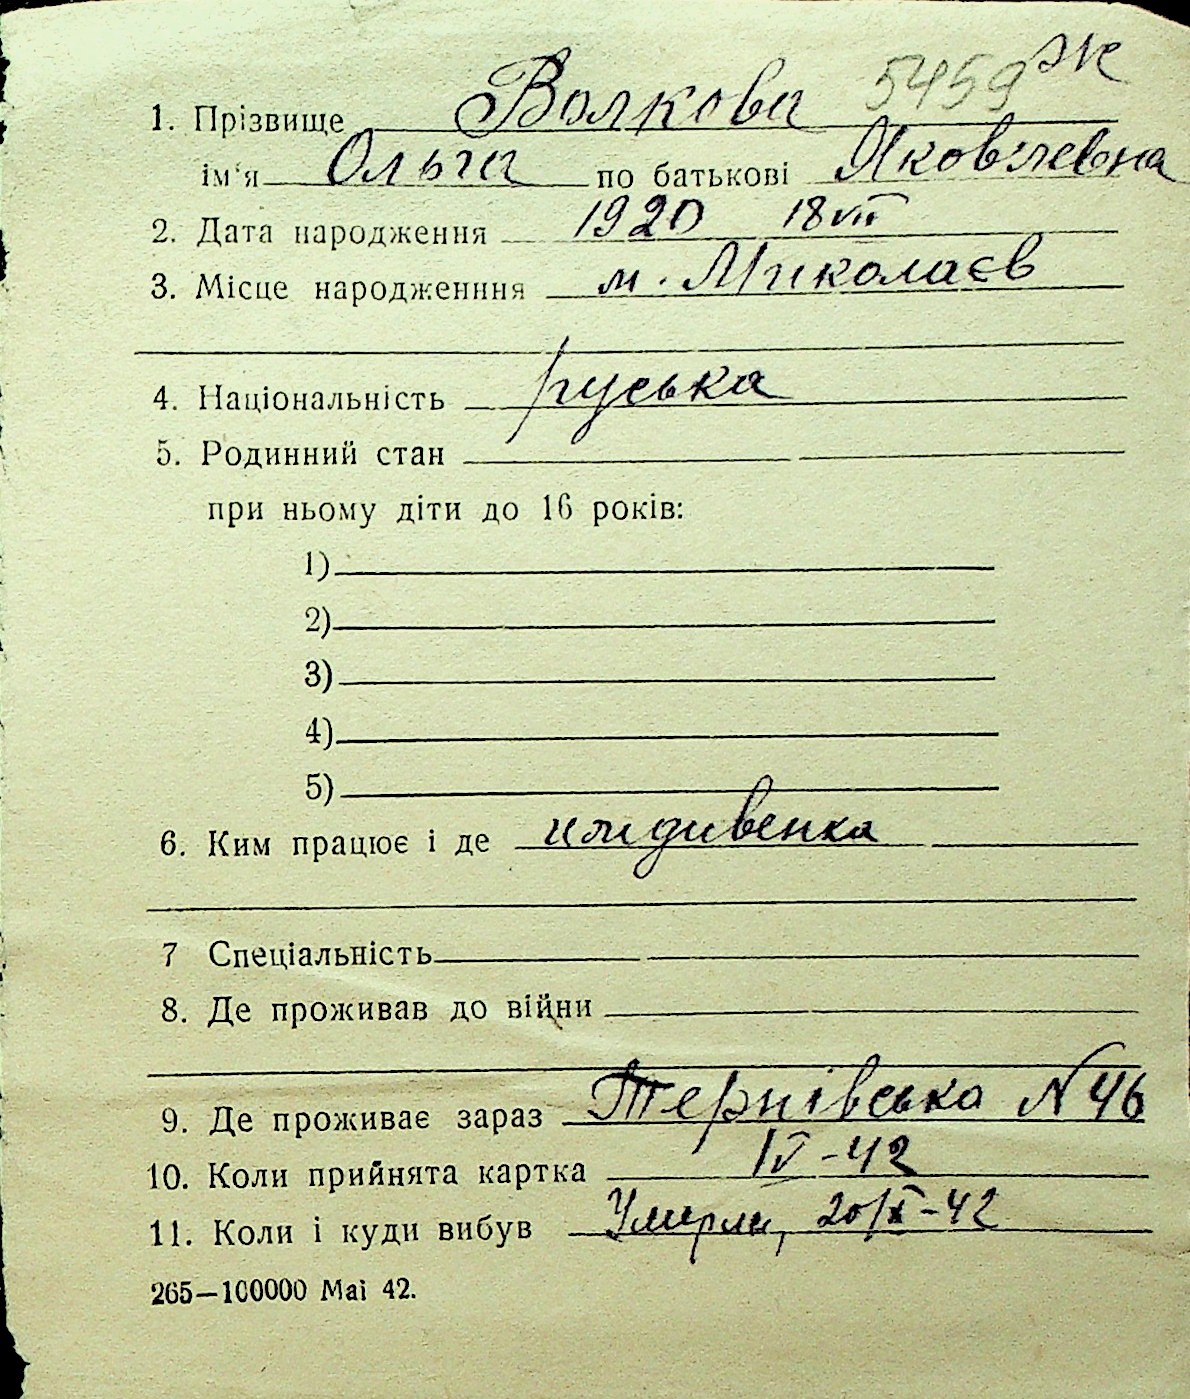 5459 Ж
1. Прізвище Волкова
ім'я Ольга по батькові Яковлевна
2. Дата народження 1920 18 VII
3. Місце народженння м. Миколаєв
4. Національність руська
5. Родинний стан
при ньому діти до 16 років:
1)
2)
3)
4)
5)
6. Ким працює і де иждивенка
7 Спеціальність
8. Де проживав до війни
9. Де проживає зараз Тернівська N 46
10. Коли прийнята картка IV-42
11. Коли і куди вибув Умерла, 20/X-42
265—100000 Mai 42.